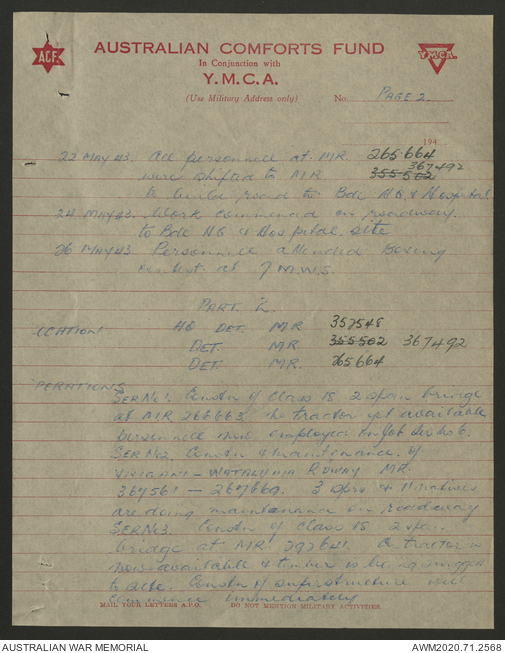 ACF
AUSTRALIAN COMFORTS FUND
In Conjunction with
Y.M.C.A.
Y.M.C.A.
(Use Military Address only) No. PAGE 2.
194
22 MAY 43. All personnel at MR. 265664
were shifted to MR 355502 367492
to build road to Bde HQ & Hospital
24 MAY 43. Work commenced on roadway
to Bde HQ & Hospital site
26 MAY 43 Personnel attended Boxing
at 7 M.W.S.
PART 2.
LOCATION HQ DET. MR 357548
DET. MR 355502 367492
DET. MR. 265664
PERATIONS
SER No1. Constn of Class 18 2 span bridge
at MR 266663. No tractor yet available
personnel now employed on job Ser No 6.
SER No2. Constn & maintenance of
VIVIGANI - WATALUMA R dway MR.
367561 - 267660. 3 Sprs & 11 natives
are doing maintenance on roadway
SER No3. Constn of Class 18 2 span
bridge at MR 292641. A tractor is
now available & timber is being snigged
to site. Constn of superstructure will
commence immediately
MAIL YOUR LETTERS A.P.O. DO NOT MENTION MILITARY ACTIVITIES.
AUSTRALIAN WAR MEMORIAL AWM2020.71.2568